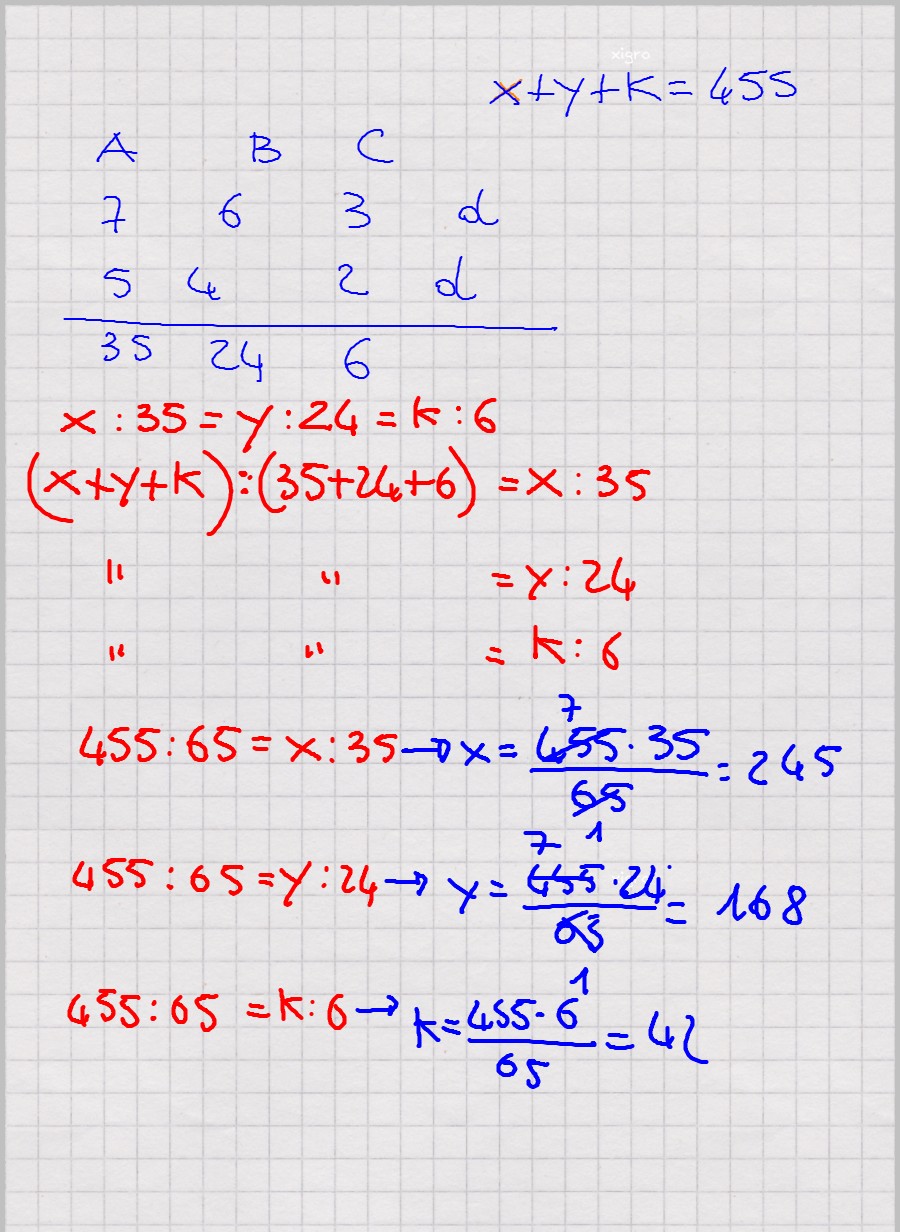 xigro
x+y+k=455
A B C
7 6 3 d
5 4 2 d
35 24 6
x:35=y:24=k:6
(x+y+k):(35+24+6)=x:35
" " =y:24
" " =k:6
455:65=x:35→x=455·35/65=245
7
1
455:65=y:24→y=455·24/65=168
7
1
455:65=k:6→k=455·6/65=42